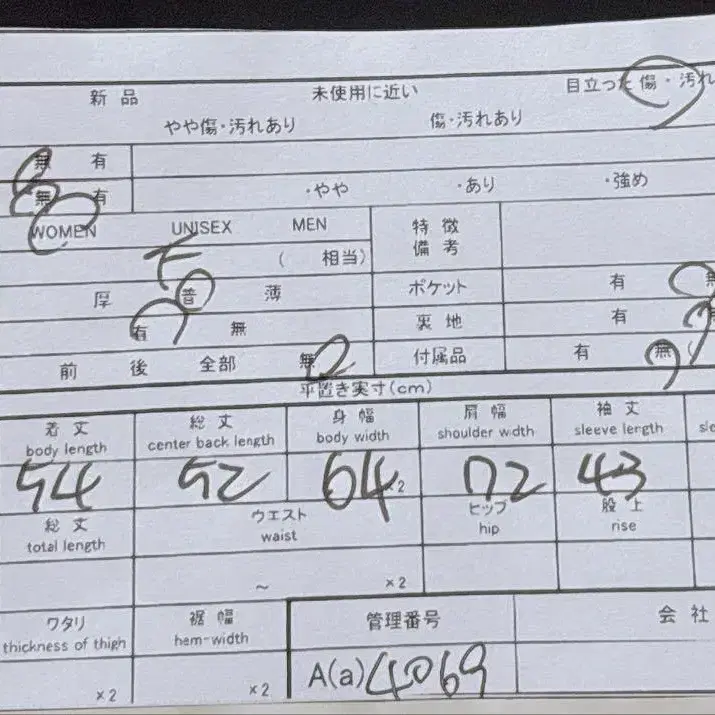 新品 未使用に近い 目立った傷・汚れ
やや傷・汚れあり 傷・汚れあり
無 有
無 有 ・やや ・あり ・強め
WOMEN UNISEX MEN 特徴
備考
F ( 相当)
厚 普 薄 ポケット 有 無
有 無 裏地 有
前 後 全部 無 付属品 有 無 (
平置き実寸(cm)
着丈 総丈 身幅 肩幅 袖丈
body length center back length body width shoulder width sleeve length sle
54 52 64 ×2 72 43
総丈 ウエスト ヒップ 股上
total length waist hip rise
~ ×2
ワタリ 裾幅 管理番号 会社
thickness of thigh hem-width
×2 ×2 A(a) 4069